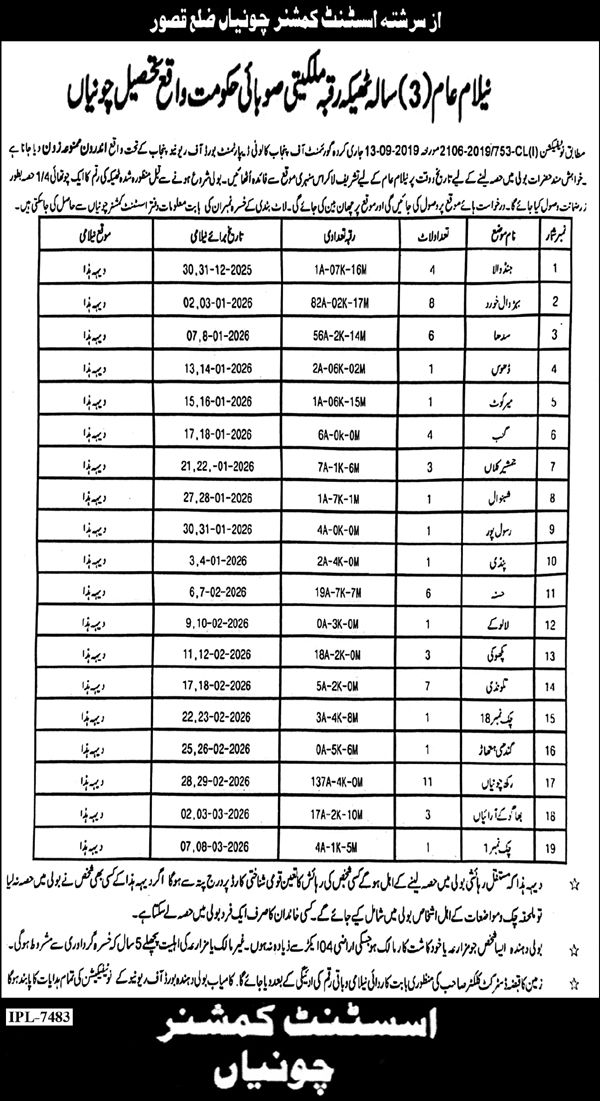 از سرشتہ اسسٹنٹ کمشنر چونیاں ضلع قصور
نیلام عام (3) سالہ ٹھیکہ رقبہ ملکیتی صوبائی حکومت واقع تحصیل چونیاں
مطابق نوٹیفکیشن 2106-2019/753-CL(I) مورخہ 13-09-2019 جاری کردہ گورنمنٹ آف پنجاب کالونی ڈیپارٹمنٹ بورڈ آف ریونیو پنجاب کے تحت واقع اندرون ممنوعہ زون دیا جانا ہے
۔ خواہش مند حضرات بولی میں حصہ لینے کے لیے تاریخ و وقت پر نیلام عام کے لیے تشریف لا کر اس سنہری موقع سے فائدہ اٹھائیں۔ بولی شروع ہونے سے قبل منظور شدہ ٹھیکہ کی رقم کا ایک چوتھائی 1/4 حصہ بطور
زر ضمانت وصول کیا جائے گا۔ درخواست ہائے موقع پر وصول کی جائیں گی اور موقع پر چھان بین کی جائے گی۔ لاٹ بندی کے خسرہ نمبران کی بابت معلومات دفتر اسسٹنٹ کمشنر چونیاں سے حاصل کی جا سکتی ہیں۔
نمبر شمار نام موضع تعداد لاٹ رقبہ تعدادی تاریخ برائے نیلامی موقع نیلامی
1 جنڈوالا 4 1A-07K-16M 30,31-12-2025 دیہہ ہذا
2 بہڑوال خورد 8 82A-02K-17M 02,03-01-2026 دیہہ ہذا
3 سدھا 6 56A-2K-14M 07,8-01-2026 دیہہ ہذا
4 1 2A-06K-02M 13,14-01-2026 دیہہ ہذا
5 میرکوٹ 1 1A-06K-15M 15,16-01-2026 دیہہ ہذا
6 گہب 4 6A-0k-0M 17,18-01-2026 دیہہ ہذا
7 جمشیر کلاں 3 7A-1K-6M 21,22,-01-2026 دیہہ ہذا
8 1 1A-7K-1M 27,28-01-2026 دیہہ ہذا
9 رسول پور 1 4A-0K-0M 30,31-01-2026 دیہہ ہذا
10 پنڈی 1 2A-4K-0M 3,4-01-2026 دیہہ ہذا
11 6 19A-7K-7M 6,7-02-2026 دیہہ ہذا
12 لالوکے 1 0A-3K-0M 9,10-02-2026 دیہہ ہذا
13 3 18A-2K-0M 11,12-02-2026 دیہہ ہذا
14 تلونڈی 7 5A-2K-0M 17,18-02-2026 دیہہ ہذا
15 چک نمبر 18 1 3A-4K-8M 22,23-02-2026 دیہہ ہذا
16 1 0A-5K-6M 25,26-02-2026 دیہہ ہذا
17 رکھ چونیاں 11 137A-4K-0M 28,29-02-2026 دیہہ ہذا
18 بھاگوکے آرائیاں 3 17A-2K-10M 02,03-03-2026 دیہہ ہذا
19 چک نمبر 1 1 4A-1K-5M 07,08-03-2026 دیہہ ہذا
☆ دیہہ ہذا کہ مستقل رہائشی بولی میں حصہ لینے کے اہل ہو گے کسی شخص کی رہائش کا تعین قومی شناختی کارڈ پر درج پتہ سے ہو گا اگر دیہہ ہذا کے کسی بھی شخص نے بولی میں حصہ نہ لیا
تو ملحقہ چک و مواضعات کے اہل اشخاص بولی میں شامل کیے جائے گے۔ کسی خاندان کا صرف ایک فرد بولی میں حصہ لے سکتا ہے۔
☆ بولی دہندہ ایسا شخص جو مزارعہ یا خود کاشت کار مالک ہو جسکی اراضی 04 ایکڑ سے زیادہ نہ ہوں۔ غیر مالک یا مزارعہ کی اہلیت پچھلے 5 سال کہ خسرہ گرداوری سے مشروط ہو گی۔
☆ زمین کا قبضہ ڈسٹرکٹ کلکٹر صاحب کی منظوری بابت کاروائی نیلامی و باقی رقم کی ادائیگی کے بعد دیا جائے گا۔ کامیاب بولی دہندہ بورڈ آف ریونیو کے نوٹیفکیشن کی تمام ہدایات کا پابند ہو گا
IPL-7483
اسسٹنٹ کمشنر
چونیاں